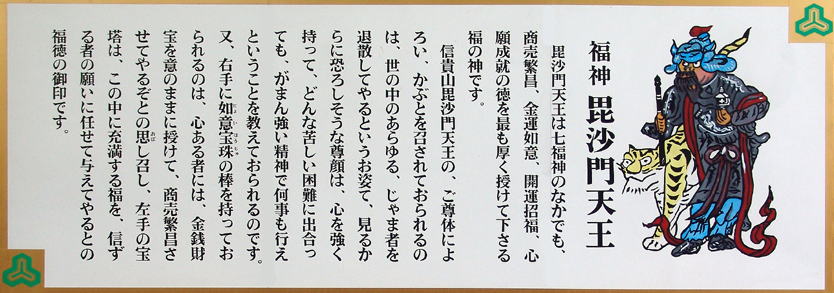 福神 毘沙門天王
毘沙門天王は七福神のなかでも、
商売繁昌、金運如意、開運招福、心
願成就の徳を最も厚く授けて下さる
福の神です。
信貴山毘沙門天王の、ご尊体によ
ろい、かぶとを召されておられるの
は、世の中のあらゆる、じゃま者を
退散してやるというお姿で、見るか
らに恐ろしそうな尊顔は、心を強く
持って、どんな苦しい困難に出合っ
ても、がまん強い精神で何事も行え
ということを教えておられるのです。
又、右手に如意宝珠の棒を持ってお
られるのは、心ある者には、金銭財
宝を意のままに授けて、商売繁昌さ
せてやるぞとの思し召し、左手の宝
塔は、この中に充満する福を、信ず
る者の願いに任せて与えてやるとの
福徳の御印です。